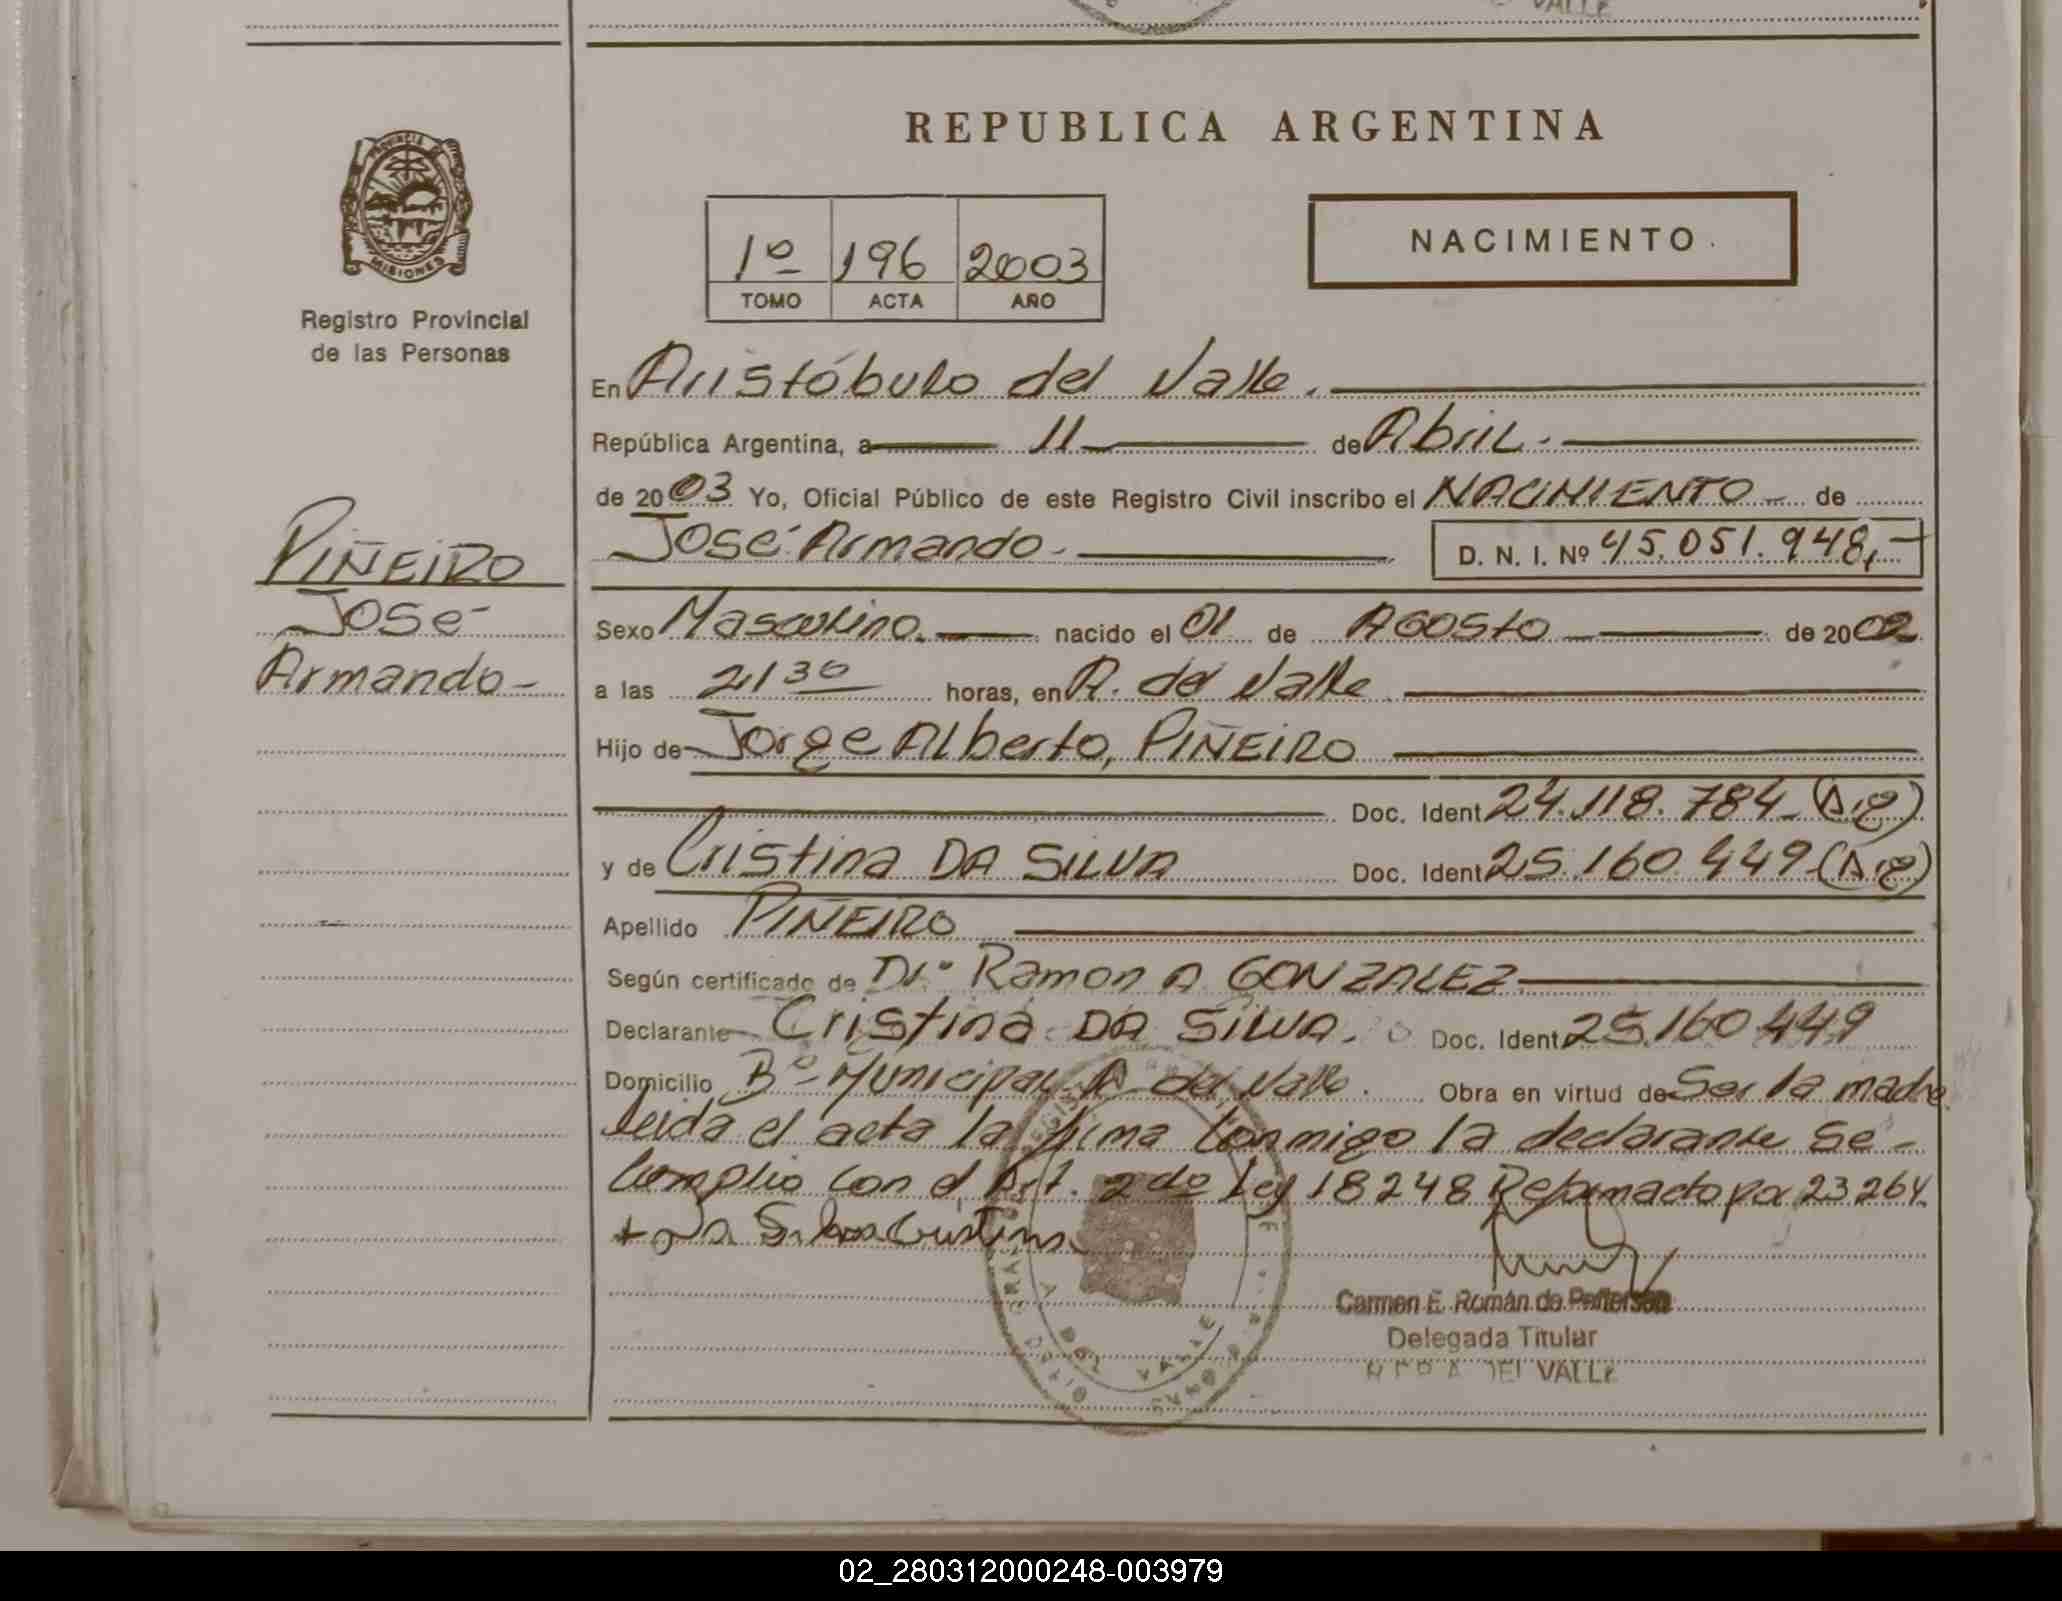 VALLE
REPUBLICA ARGENTINA
PROVINCIA DE
MISIONES
Registro Provincial
de las Personas
1º 196 2003
TOMO ACTA AÑO
NACIMIENTO
En Aristóbulo del Valle.
República Argentina, a 11 de Abril.
de 2003 Yo, Oficial Público de este Registro Civil inscribo el NACIMIENTO de
José Armando D. N. I. Nº 45.051.948,-
PIÑEIRO
José
Armando-
Sexo Masculino. nacido el 01 de AGOSTO de 2002
a las 21 30 horas, en A. del Valle
Hijo de Jorge Alberto, PIÑEIRO
Doc. Ident 24.118.784 (Arg)
y de Cristina DA SILVA Doc. Ident 25.160.449 (Arg)
Apellido PIÑEIRO
Según certificado de Dr. Ramon A GONZALEZ
Declarante Cristina DA SILVA. Doc. Ident. 25.160 449
Domicilio Bº Municipal A del Valle. Obra en virtud de Ser la madre.
leida el acta la firma conmigo la declarante se-
cumplio con el Art. 2do Ley 18248 Reformado por 23264
+ Da Silva Cristina
A DEL VALLE
Carmen E. Román de Pefferson
Delegada Titular
DEL VALLE
02_280312000248-003979